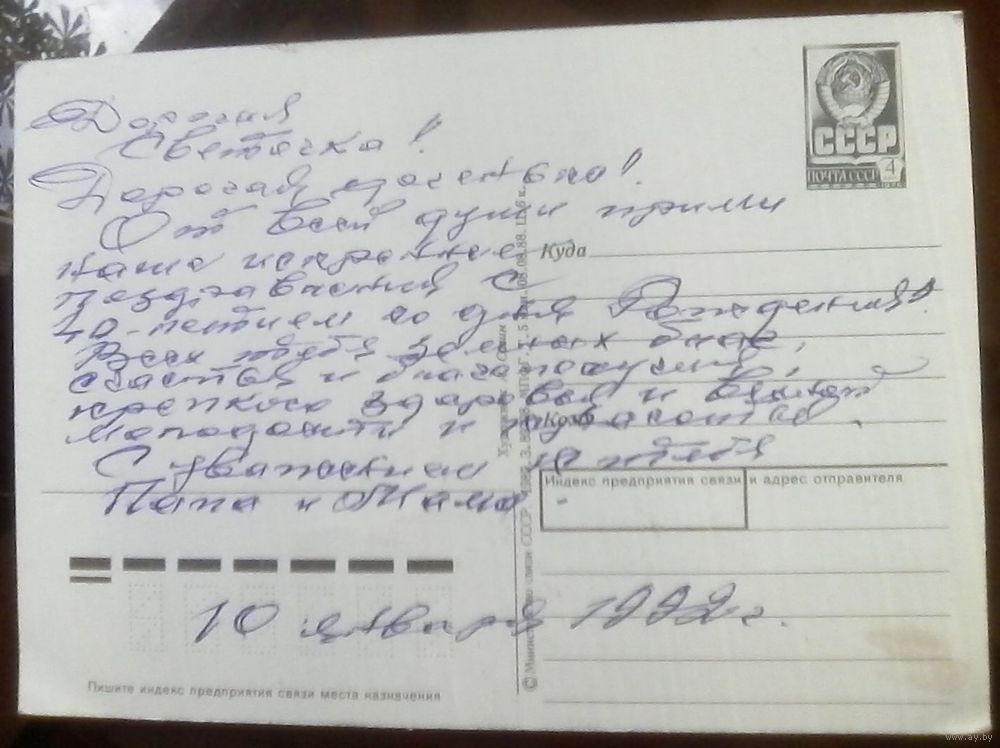 Дорогая
Светочка!
Дорогая доченька!
От всей души прими
наше искреннее
поздравления с
40-летием со дня Рождения!
Всех тебе земных благ,
счастья и благополучия,
крепкого здоровья и вечной
молодости и
С уважением к тебе
Папа и Мама
10 января 1992 г.
СССР
ПОЧТА СССР 4
Куда
Кому
Индекс предприятия связи и адрес отправителя
Пишите индекс предприятия связи места назначения
© Министерство связи СССР
Художник
www.ay.by